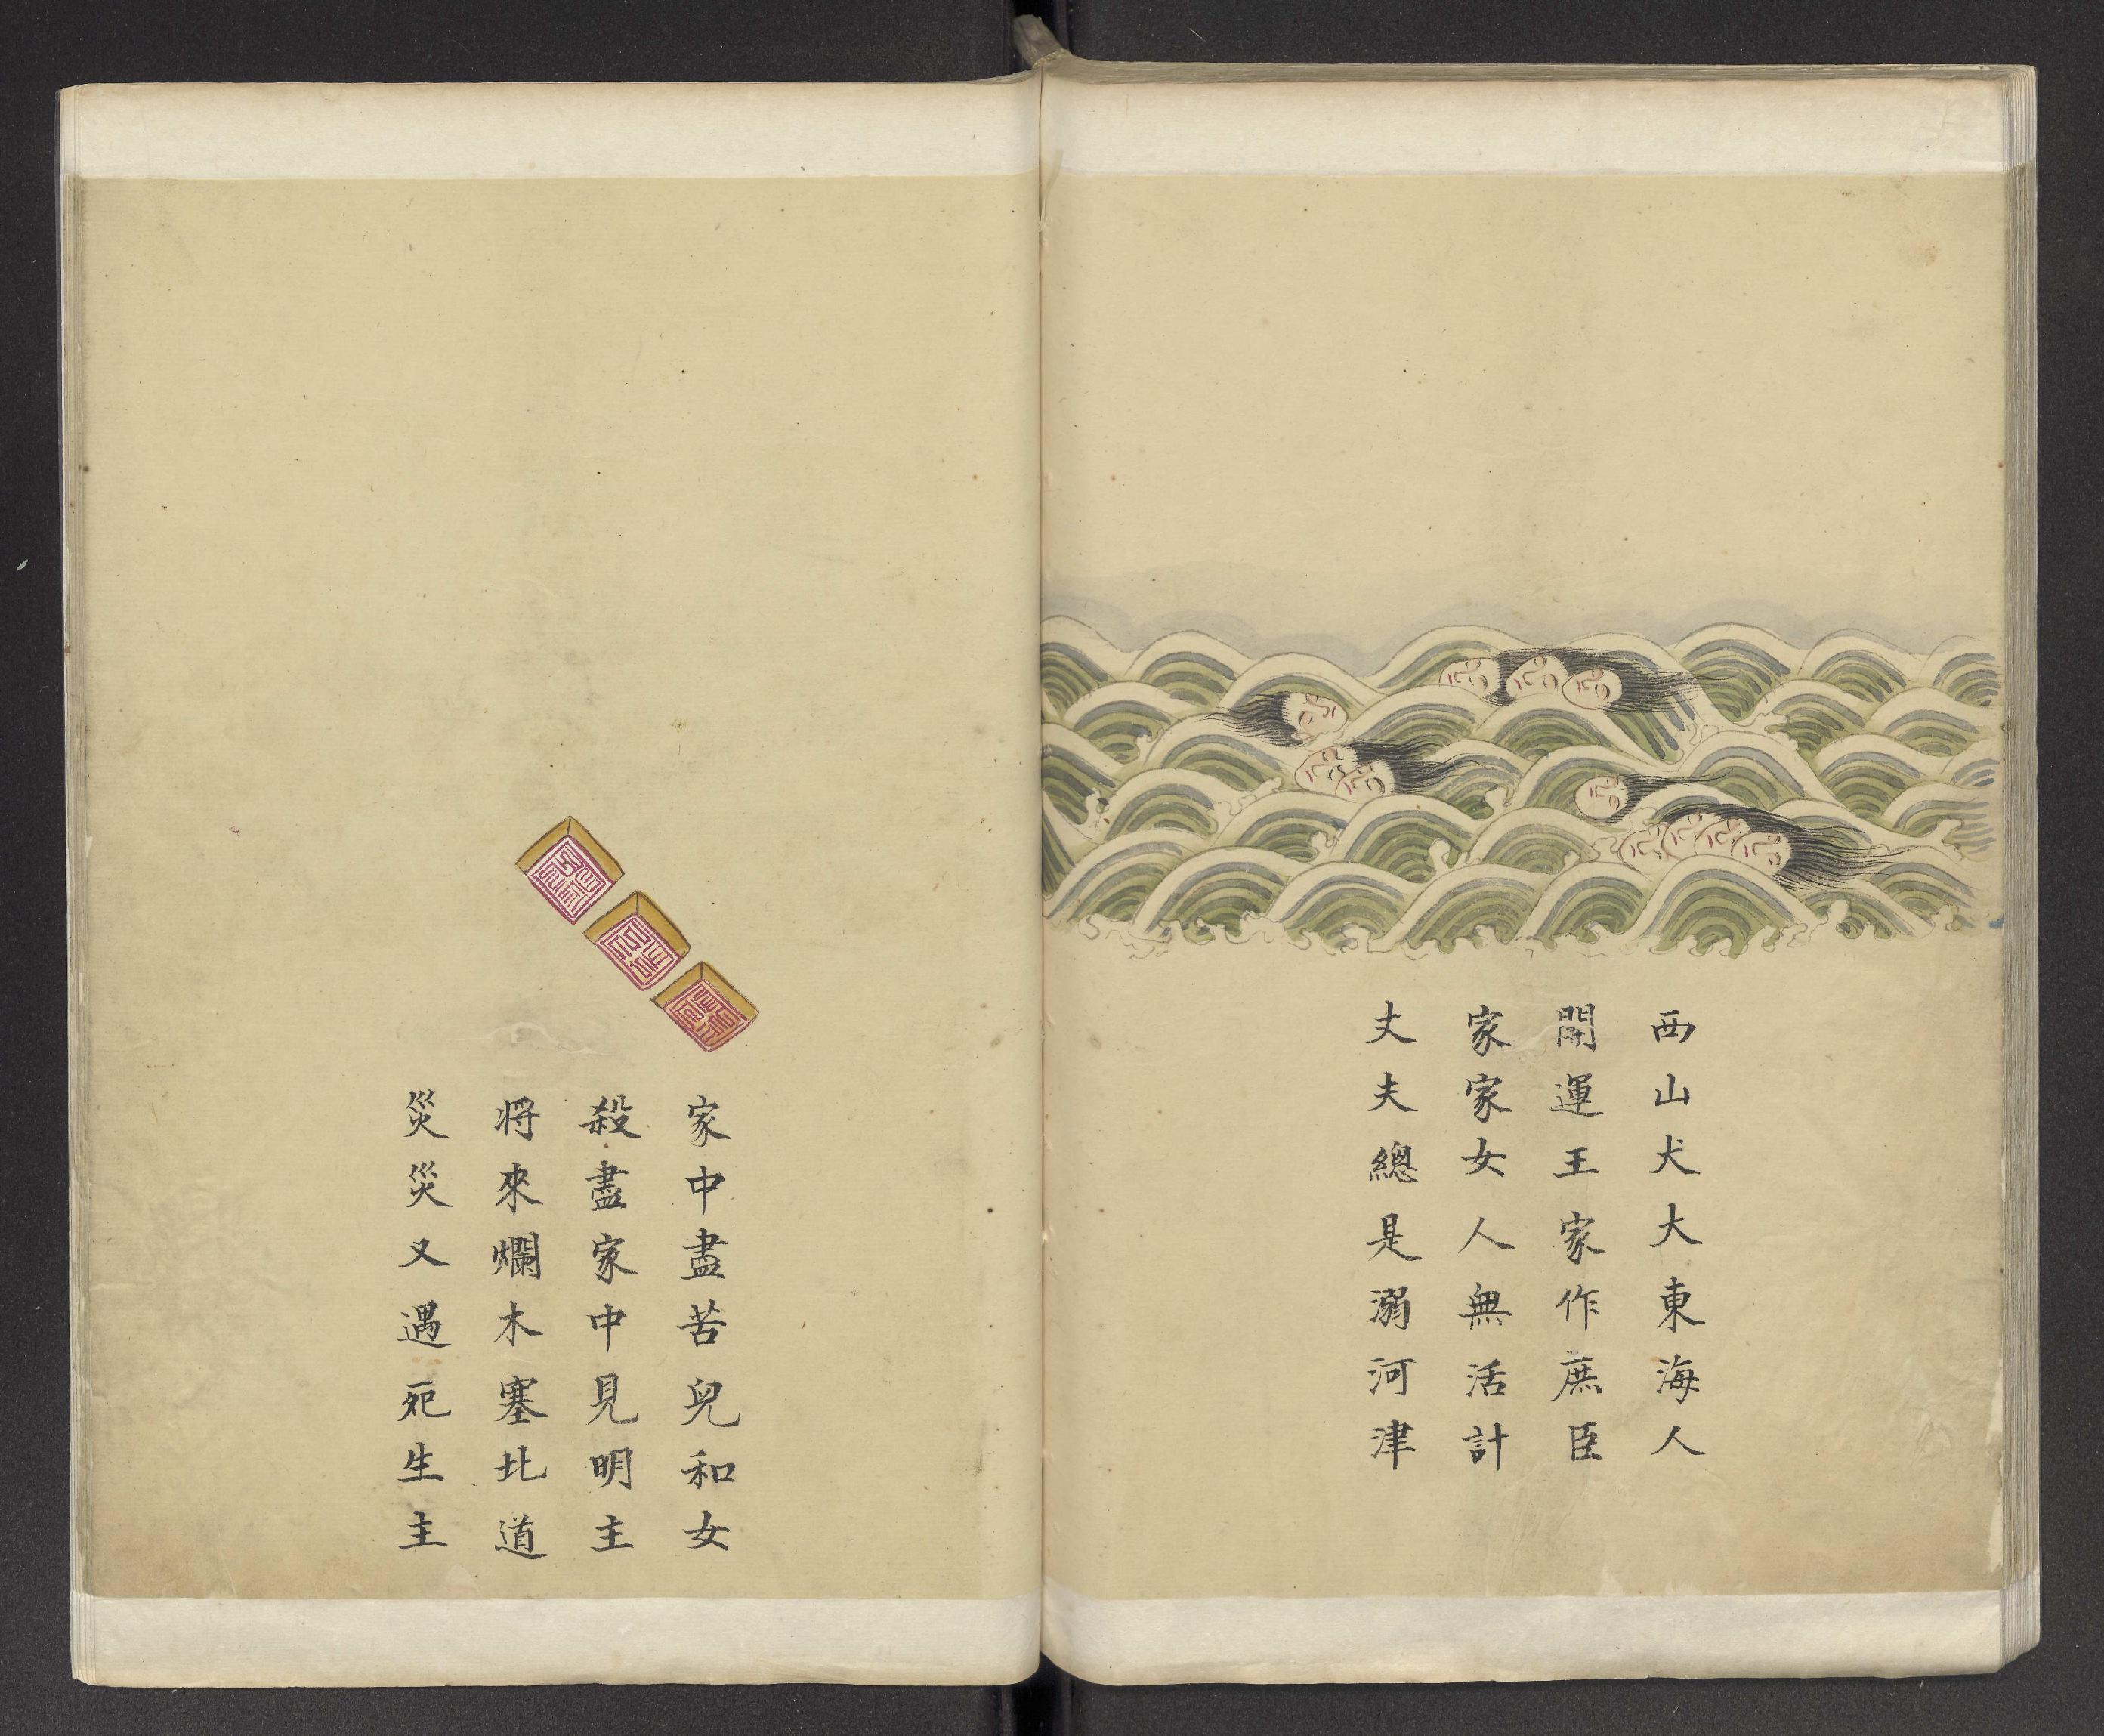 西山犬大東海人
開運王家作庶臣
家家女人無活計
丈夫總是溺河津
家中盡苦兒和女
殺盡家中見明主
將來爛木塞北道
災災又遇死生主